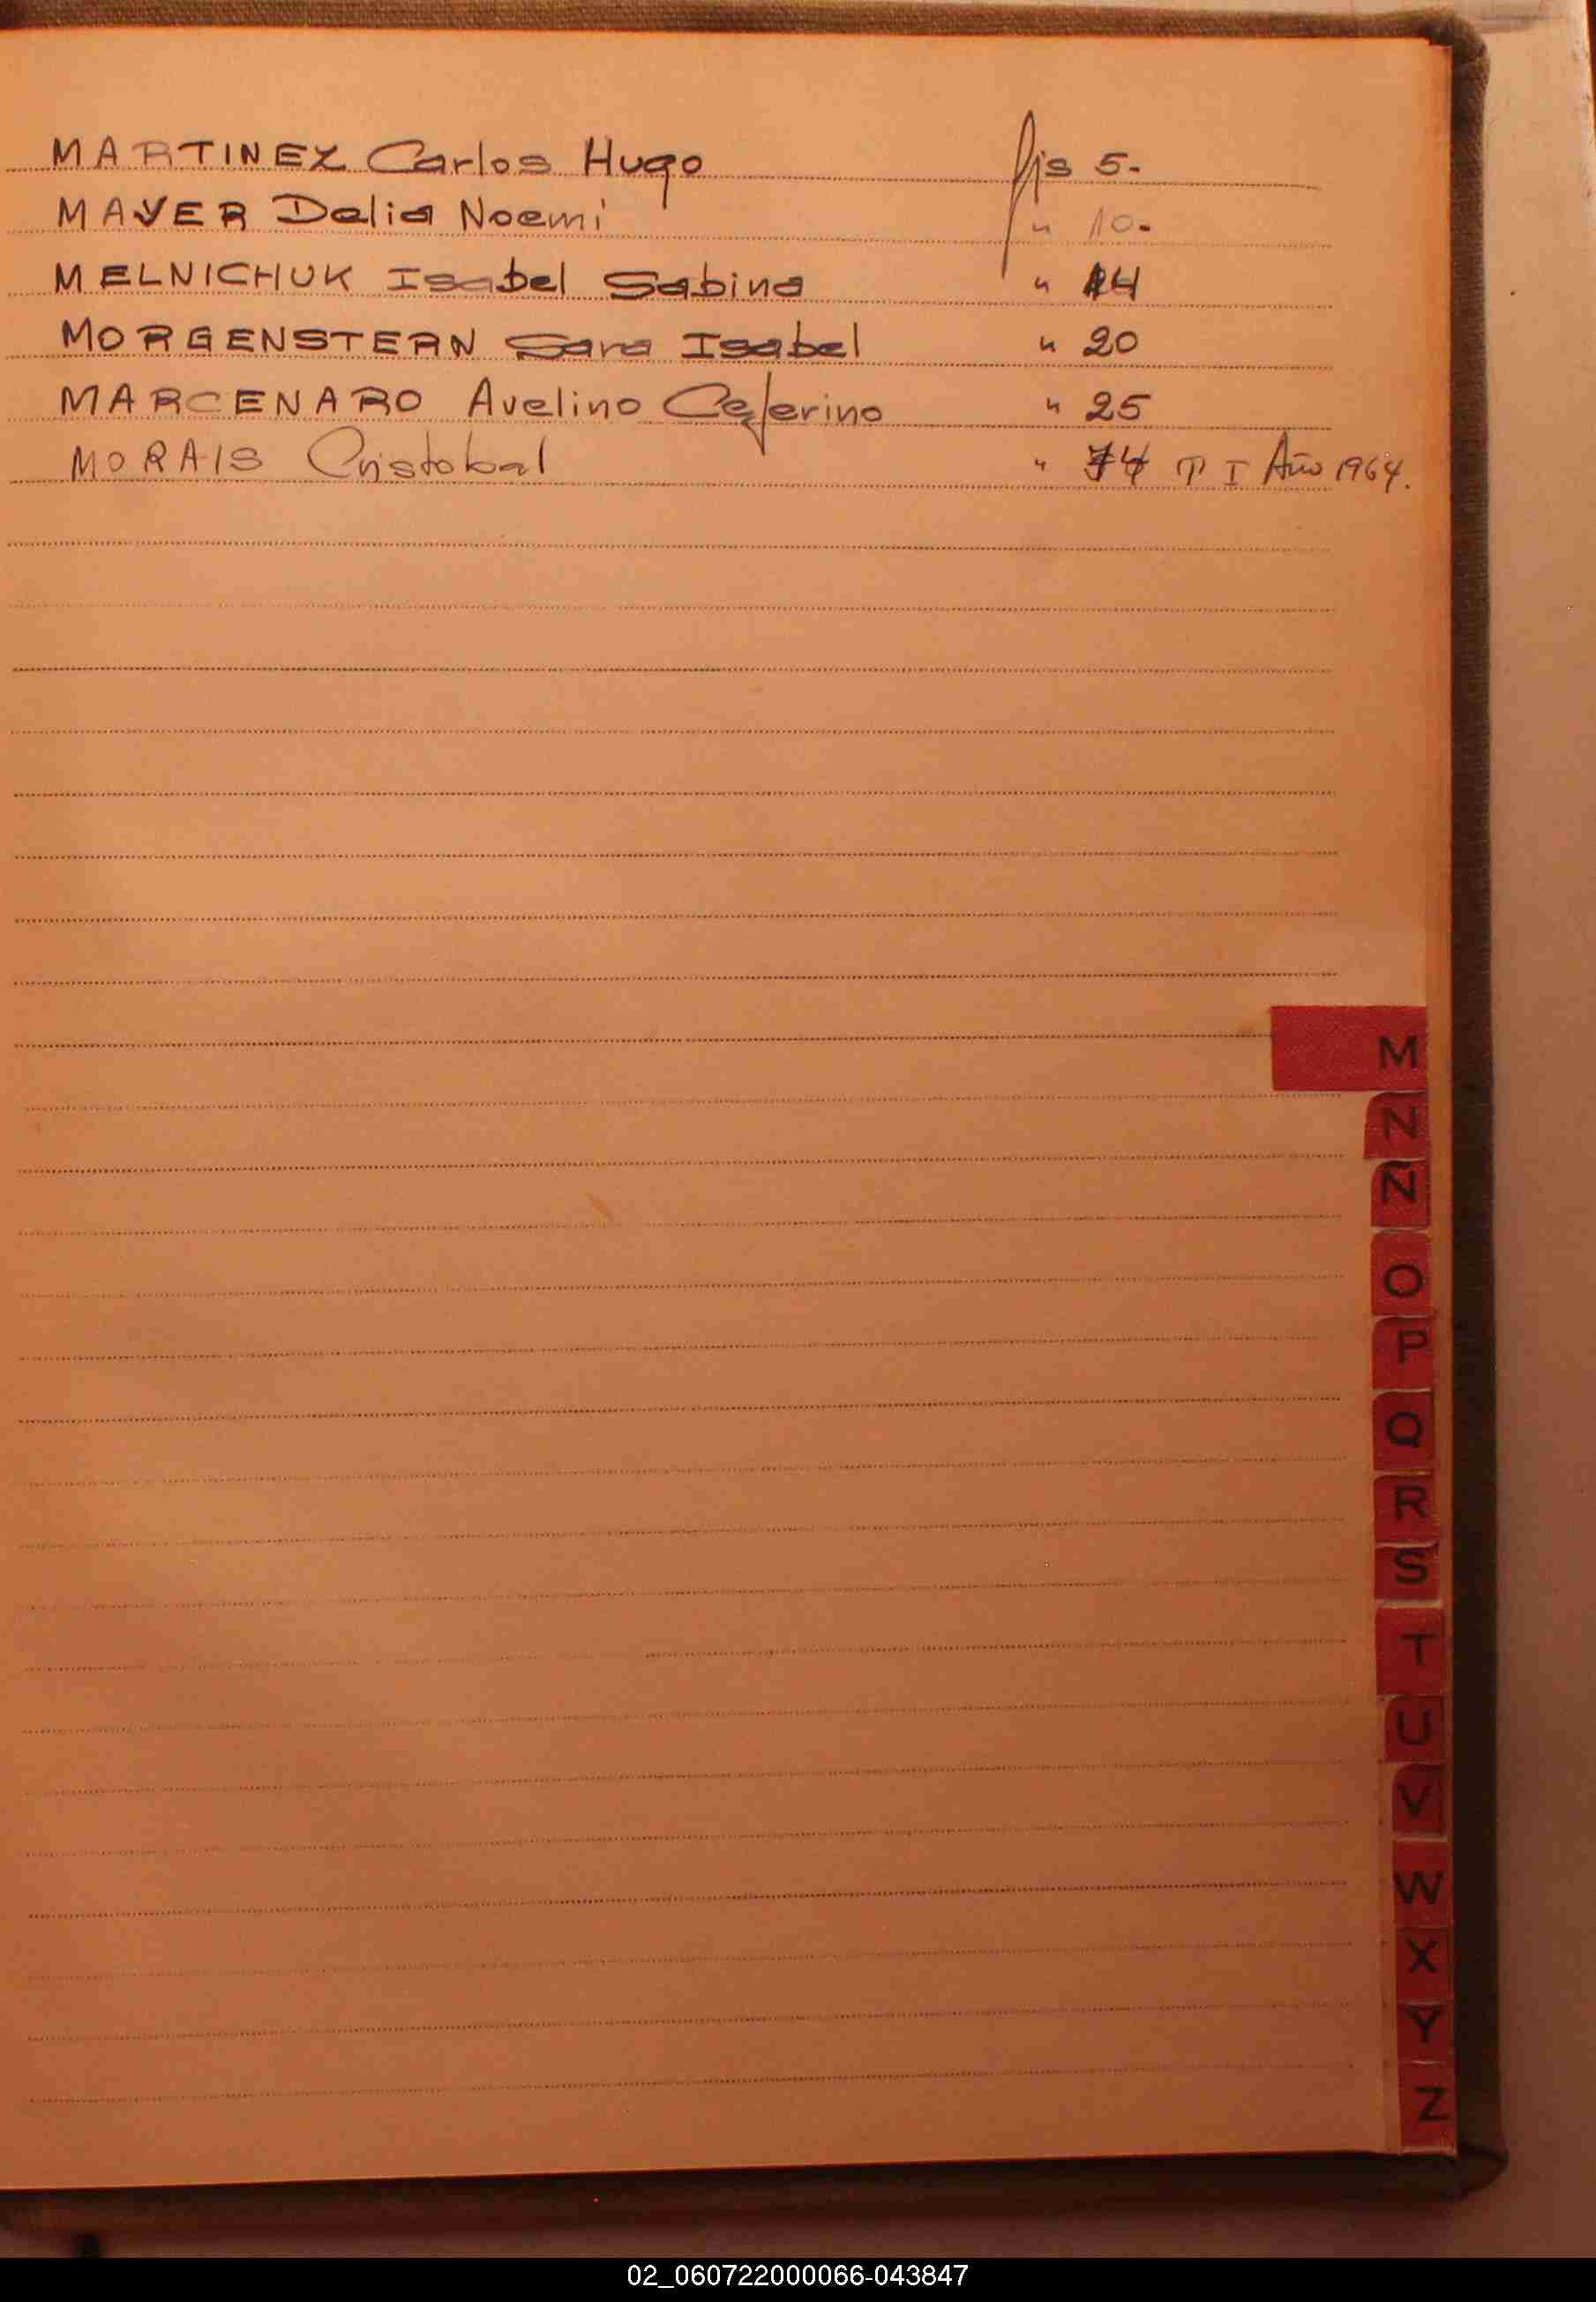 MARTINEZ Carlos Hugo fjs 5.-
MAYER Delia Noemi " 10.-
MELNICHUK Isabel Sabina " 14
MORGENSTERN Sara Isabel " 20
MARCENARO Avelino Ceferino " 25
MORAIS Cristobal " 74 T I Año 1964.
M
N
Ñ
O
P
Q
R
S
T
U
V
W
X
Y
Z
02_060722000066-043847